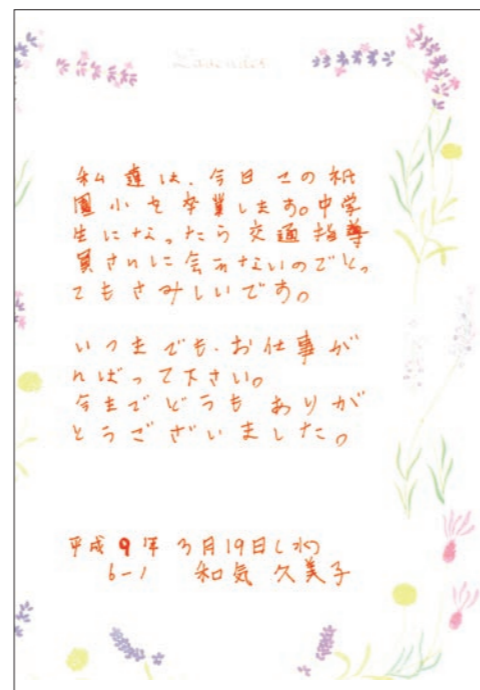 Lavender
私達は、今日この祇
園小を卒業します。中学
生になったら交通指導
員さんに会えないのでとっ
てもさみしいです。
いつまでも、お仕事が
んばって下さい。
今までどうもありが
とうございました。
平成9年3月19日(水)
6-1 和気 久美子